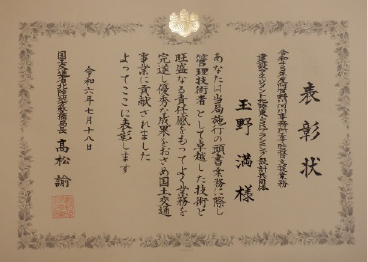 表彰状
玉野 満 様
あなたは当局施行の頭書業務に際し
管理技術者として卓越した技術と
旺盛なる責任感をもってよく業務を
完遂し優秀な成果をおさめ国土交通
事業に貢献されました
よってここに表彰します
令和六年七月十八日
国土交通省北陸地方整備局長 髙松 諭